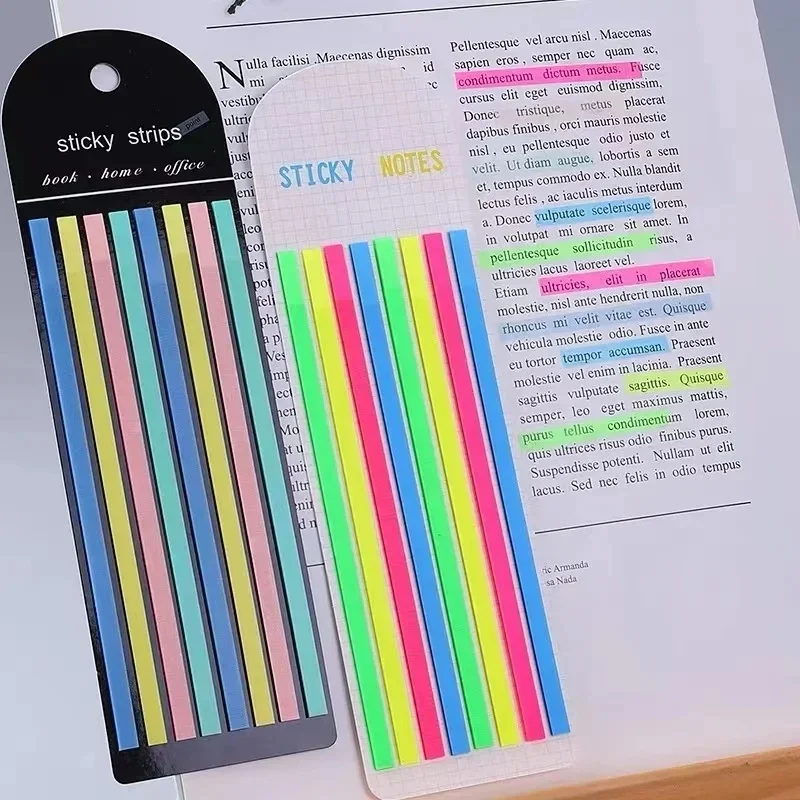 sticky strips
point
book · home · office
STICKY NOTES
Nulla facilisi .Maecenas dignissim
mi id
vestibu
Pellentesque vel arcu nisl . Maecenas
sapien eros , semper nec quam ac,
condimentum dictum metus. Fusce
cursus elit eget euismod dignissim,
Donec tristique, metus placerat
dapibus finibus , orci mauris molestie
nisl , eu pellentesque odio justo et
velit. Ut diam augue, lobortis a sem
et, tempus commodo ex. Nulla blandit
lectus felis , ac iaculis metus interdum
a. Donec vulputate scelerisque lorem,
in volutpat mi ornare sit amet. In
pellentesque sollicitudin risus, a
ultricies lacus laoreet vel.
Etiam ultricies, elit in placerat
molestie, nisl ante hendrerit nulla, non
rhoncus mi velit vitae est. Quisque
vehicula molestie odio. Fusce in ante
eu tortor tempor accumsan. Praesent
molestie vel enim in lacinia. Praesent
sagittis vulputate sagittis. Quisque
semper, leo eget maximus mattis,
purus tellus condimentum lorem,
quis ultrices risus odio finibus purus.
Suspendisse potenti. Nullam ut elit
lacus. Sed nec felis in odio tempus
ric Armanda
sa Nada